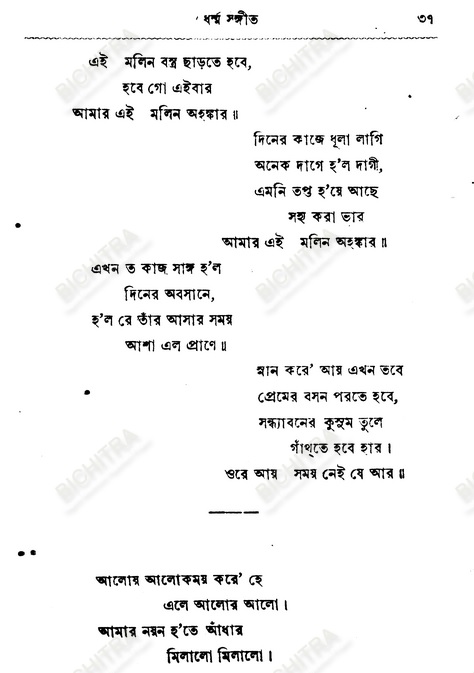 ধর্ম্ম সঙ্গীত ৩৭
এই মলিন বস্ত্র ছাড়তে হবে,
হবে গো এইবার
আমার এই মলিন অহঙ্কার॥
দিনের কাজে ধূলা লাগি
অনেক দাগে হ'ল দাগী,
এমনি তপ্ত হ'য়ে আছে
সহ্য করা ভার
আমার এই মলিন অহঙ্কার॥
এখন ত কাজ সাঙ্গ হ'ল
দিনের অবসানে,
হ'ল রে তাঁর আসার সময়
আশা এল প্রাণে॥
স্নান করে' আয় এখন তবে
প্রেমের বসন পরতে হবে,
সন্ধ্যাবনের কুসুম তুলে
গাঁথ্‌তে হবে হার।
ওরে আয় সময় নেই যে আর॥
আলোয় আলোকময় করে' হে
এলে আলোর আলো।
আমার নয়ন হ'তে আঁধার
মিলালো মিলালো।
BICHITRA
BICHITRA
BICHITRA
BICHITRA
BICHITRA
BICHITRA
BICHITRA
BICHITRA
BICHITRA